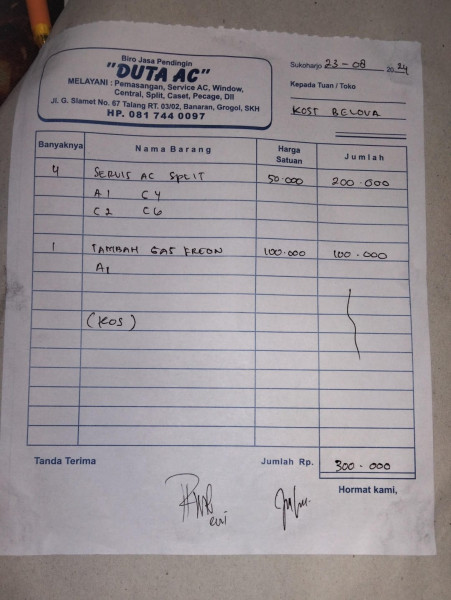 Biro Jasa Pendingin
"DUTA AC"
MELAYANI : Pemasangan, Service AC, Window,
Central, Split, Caset, Pecage, Dll
Jl. G. Slamet No. 67 Talang RT. 03/02, Banaran, Grogol, SKH
HP. 081 744 0097
Sukoharjo 23 - 08 2024
Kepada Tuan / Toko
KOST BELOVA
Banyaknya Nama Barang Harga Satuan Jumlah
4 SERVIS AC SPLIT 50.000 200.000
A1 C4
C2 C6
1 TAMBAH GAS FREON 100.000 100.000
A1
(KOS)
Tanda Terima Jumlah Rp. 300.000
Hormat kami,